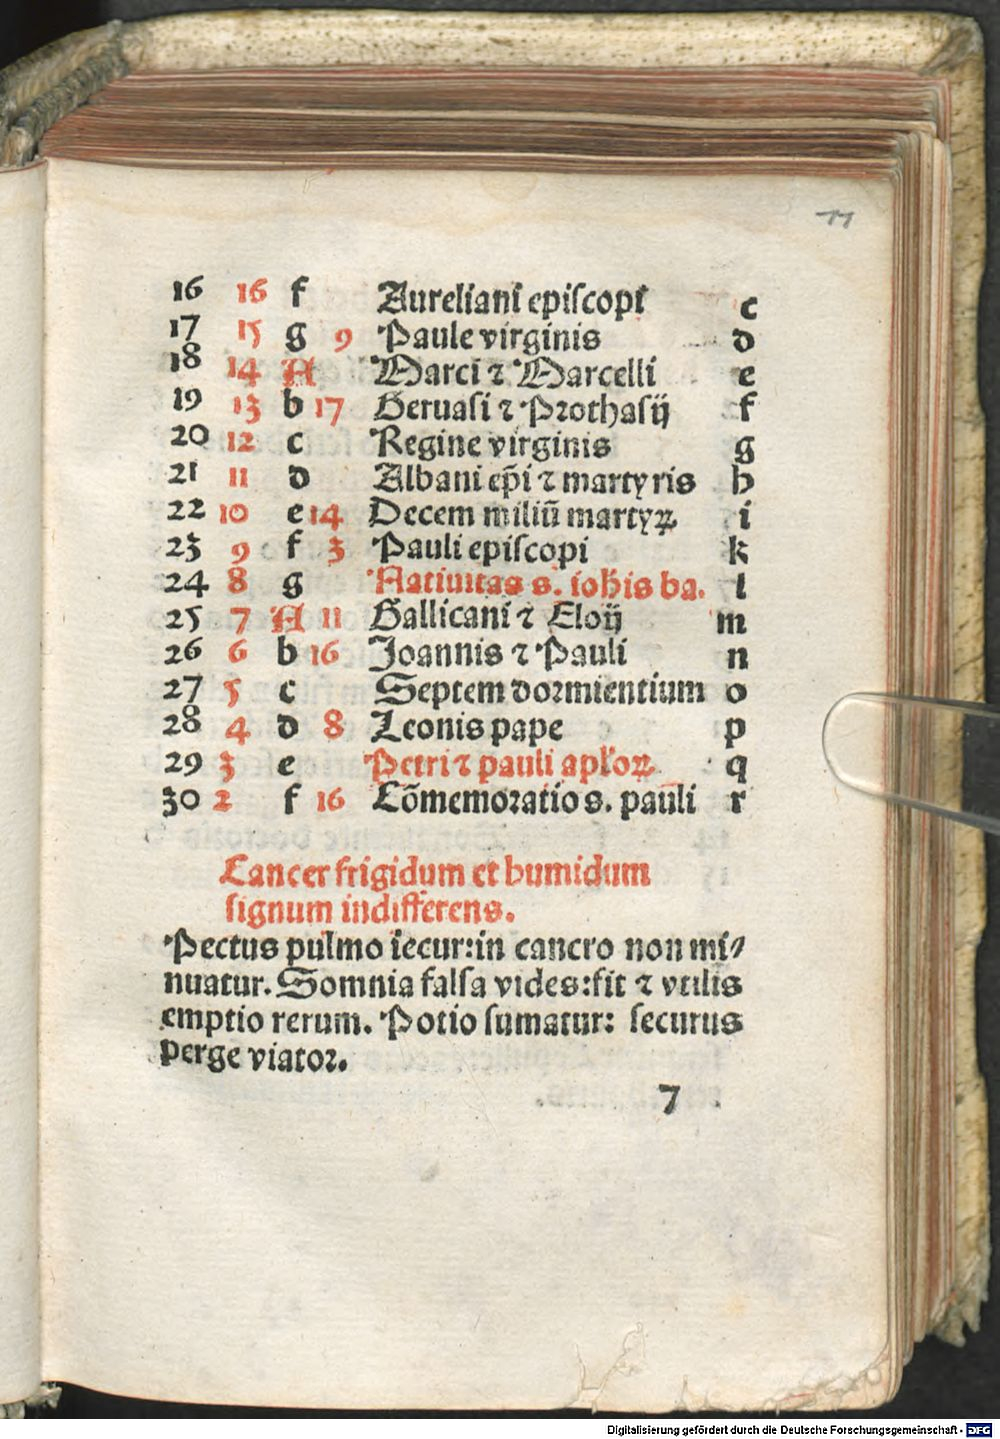 11
16 16 f Aureliani epiſcopi c
17 15 g 9 Paule virginis d
18 14 A Marci ⁊ Marcelli e
19 13 b 17 Geruaſi ⁊ Prothaſij f
20 12 c Regine virginis g
21 11 d Albani ep̄i ⁊ martyris h
22 10 e 14 Decem miliū martyꝝ i
23 9 f 3 Pauli epiſcopi k
24 8 g Natiuitas s. ioh̄is ba. l
25 7 A 11 Gallicani ⁊ Eloij m
26 6 b 16 Joannis ⁊ Pauli n
27 5 c Septem doꝛmientium o
28 4 d 8 Leonis pape p
29 3 e Petri ⁊ pauli apl'oꝝ q
30 2 f 16 Cōmemoꝛatio s. pauli r
Cancer frigidum et humidum
ſignum indifferens.
Pectus pulmo iecur: in cancro non mi⸗
nuatur. Somnia falſa vides: fit ⁊ vtilis
emptio rerum. Potio ſumatur: ſecurus
perge viatoꝛ.
7
Digitalisierung gefördert durch die Deutsche Forschungsgemeinschaft - DFG